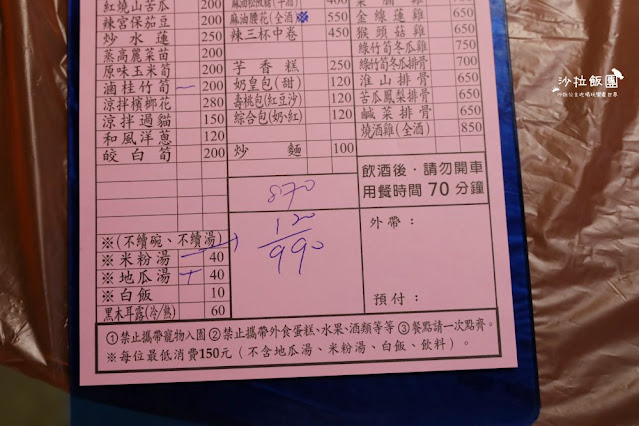 紅燒山苦瓜 200
辣宮保茄豆 200
炒水蓮 250
蒸高麗菜苗 200
原味玉米筍 200
滷桂竹筍 200
涼拌檳榔花 280
涼拌過貓 150
和風洋蔥 120
皎白筍 200
※(不續碗、不續湯)
※米粉湯 40
※地瓜湯 40
※白飯 10
黑木耳露(冷/熱) 60
400
麻油腰花(全酒)※ 550
辣三杯中卷 450
芋香糕 250
奶皇包(甜) 120
壽桃包(紅豆沙) 120
綜合包(奶、紅) 120
炒麵 100
870
120
990
金線蓮雞 650
猴頭菇雞 650
綠竹筍冬瓜雞 750
綠竹筍冬瓜排骨 700
淮山排骨 650
苦瓜鳳梨排骨 650
鹹菜排骨 650
燒酒雞(全酒) 850
飲酒後・請勿開車
用餐時間 70 分鐘
外帶：
預付：
①禁止攜帶寵物入園 ②禁止攜帶外食蛋糕、水果、酒類等等 ③餐點請一次點齊。
※每位最低消費150元（不含地瓜湯、米粉湯、白飯、飲料）。
沙拉飯團